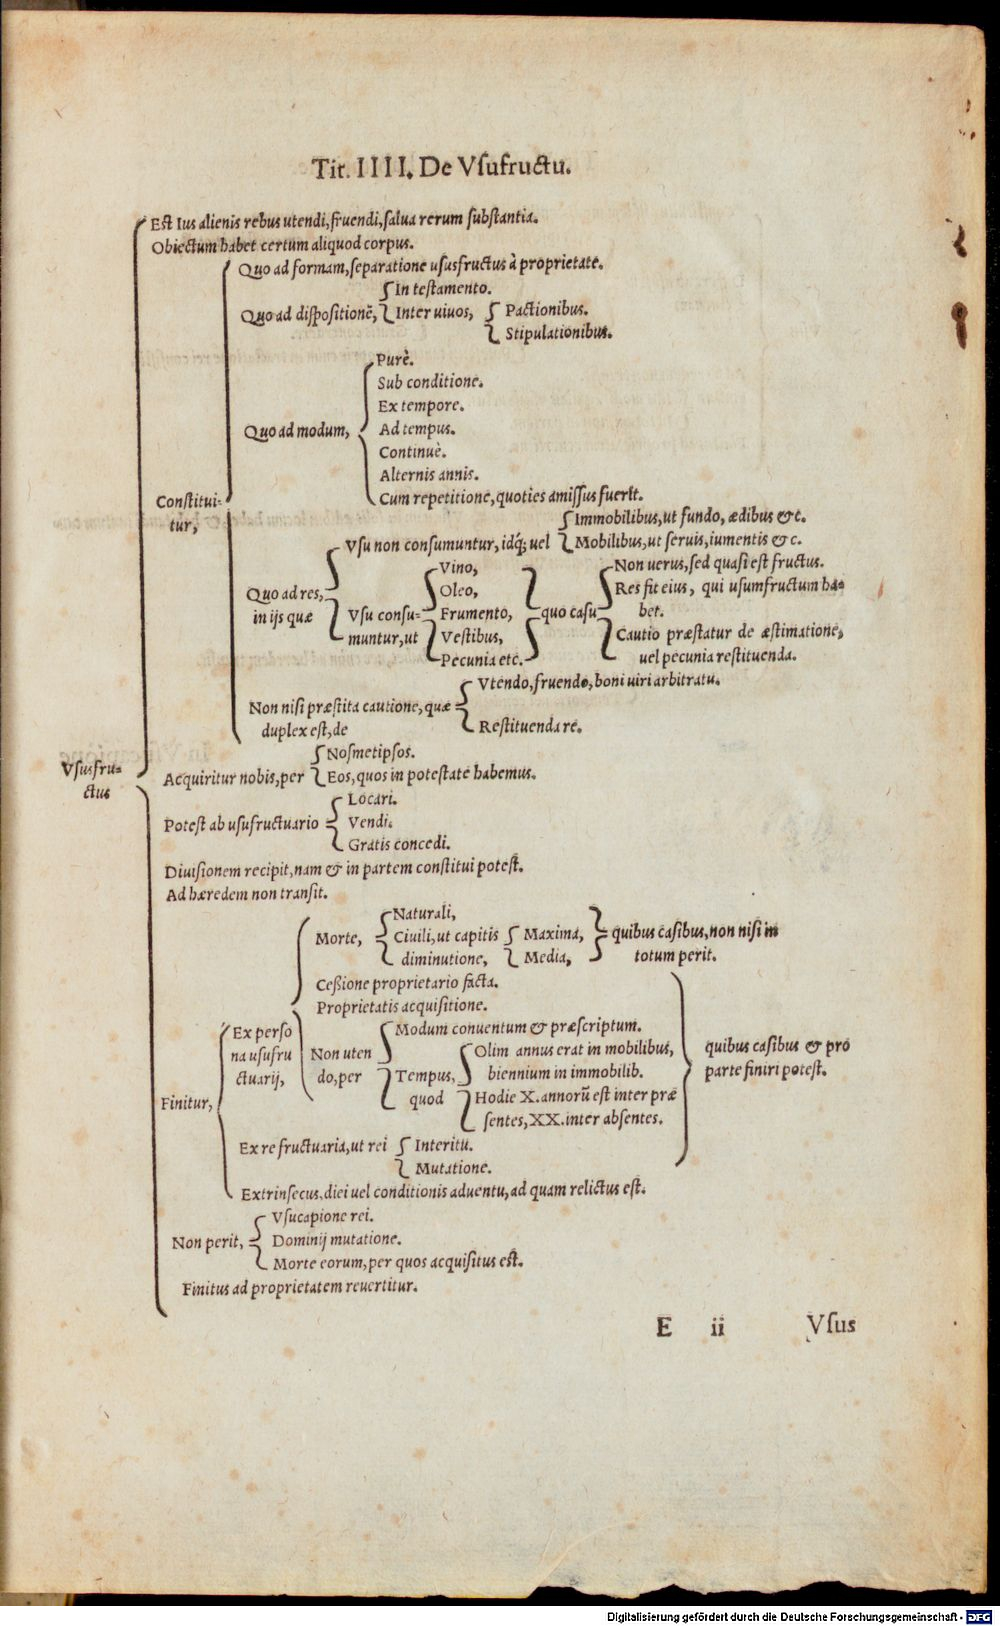 Tit. IIII. De Vſufructu.
Est Ius alienis rebus utendi, fruendi, ſalua rerum ſubſtantia.
Obiectum habet certum aliquod corpus.
Quo ad formam, ſeparatione uſusfructus à proprietate.
In teſtamento.
Quo ad diſpoſitionẽ, Inter uiuos, Pactionibus.
Stipulationibus.
Purè.
Sub conditione.
Ex tempore.
Quo ad modum, Ad tempus.
Continuè.
Alternis annis.
Conſtitui-
tur,
Cum repetitione, quoties amiſſus fuerit.
Immobilibus, ut fundo, ædibus &c.
Vſu non conſumuntur, idq́; uel Mobilibus, ut ſeruis, iumentis &c.
Quo ad res,
in ijs quæ
Vſu conſu-
muntur, ut
Vino,
Oleo,
Frumento,
Veſtibus,
Pecunia etc.
quo caſu
Non uerus, ſed quaſi eſt fructus.
Res fit eius, qui uſumfructum ha-
bet.
Cautio præſtatur de æſtimatione,
uel pecunia reſtituenda.
Non niſi præſtita cautione, quæ
duplex eſt, de
Vtendo, fruendo, boni uiri arbitratu.
Reſtituenda re.
Vſusfru-
ctus
Acquiritur nobis, per
Noſmetipſos.
Eos, quos in poteſtate habemus.
Poteſt ab uſufructuario
Locari.
Vendi.
Gratis concedi.
Diuiſionem recipit, nam & in partem conſtitui poteſt.
Ad hæredem non tranſit.
Morte,
Naturali,
Ciuili, ut capitis
diminutione,
Maxima,
Media,
quibus caſibus, non niſi in
totum perit.
Ceßione proprietario facta.
Proprietatis acquiſitione.
Ex perſo
na uſufru
ctuarij,
Non uten
do, per
Modum conuentum & præſcriptum.
Tempus,
quod
Olim annus erat in mobilibus,
biennium in immobilib.
Hodie X. annorũ eſt inter præ
ſentes, XX. inter abſentes.
quibus caſibus & pro
parte finiri poteſt.
Finitur,
Ex re fructuaria, ut rei
Interitu.
Mutatione.
Extrinſecus, diei uel conditionis aduentu, ad quam relictus eſt.
Non perit,
Vſucapione rei.
Dominij mutatione.
Morte eorum, per quos acquiſitus eſt.
Finitus ad proprietatem reuertitur.
E ii Vſus
Digitalisierung gefördert durch die Deutsche Forschungsgemeinschaft - DFG